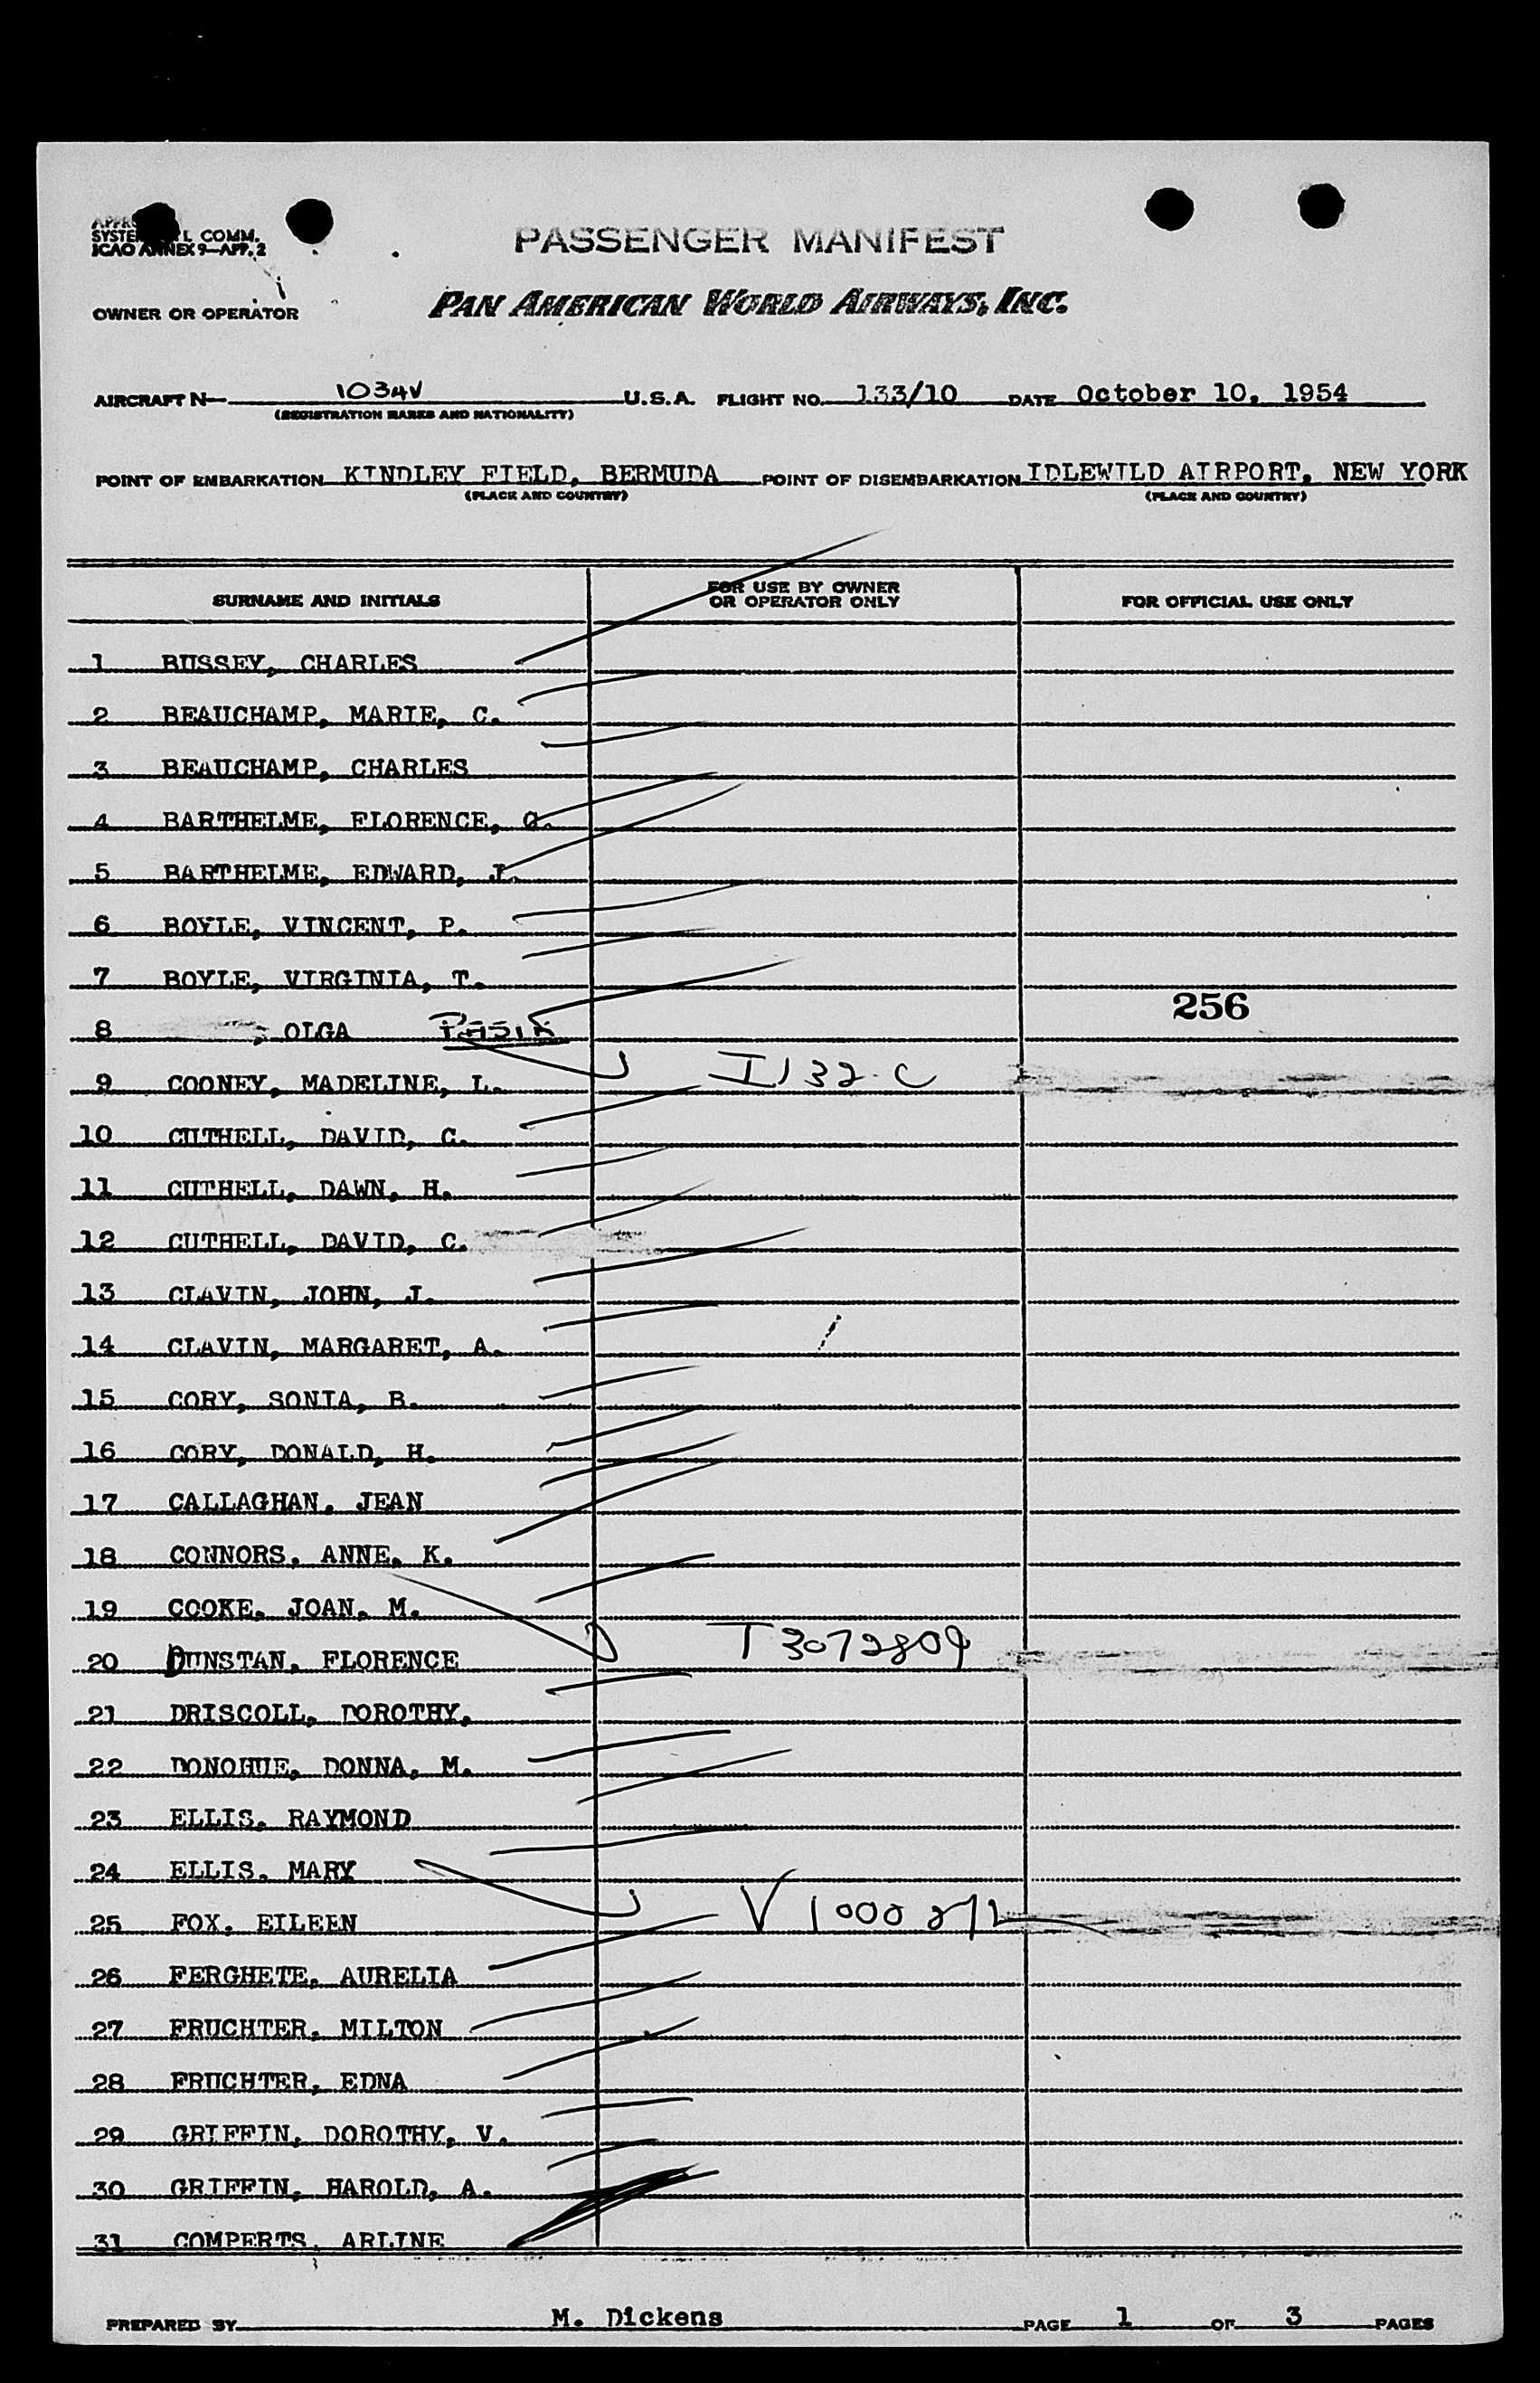 SYSTE L COMM.
ICAO ANNEX 9—APP. 2
PASSENGER MANIFEST
OWNER OR OPERATOR PAN AMERICAN WORLD AIRWAYS, INC.
AIRCRAFT N— 1034V U.S.A. FLIGHT NO. 133/10 DATE October 10, 1954
(REGISTRATION MARKS AND NATIONALITY)
POINT OF EMBARKATION KINDLEY FIELD, BERMUDA POINT OF DISEMBARKATION IDLEWILD AIRPORT, NEW YORK
(PLACE AND COUNTRY) (PLACE AND COUNTRY)
SURNAME AND INITIALS FOR USE BY OWNER OR OPERATOR ONLY FOR OFFICIAL USE ONLY
1 BUSSEY, CHARLES
2 BEAUCHAMP, MARIE, C.
3 BEAUCHAMP, CHARLES
4 BARTHELME, FLORENCE, G.
5 BARTHELME, EDWARD, J.
6 BOYLE, VINCENT, P.
7 BOYLE, VIRGINIA, T.
256
8 , OLGA PASIK
9 COONEY, MADELINE, L. I132 C
10 CUTHELL, DAVID, C.
11 CUTHELL, DAWN, H.
12 CUTHELL, DAVID, C.
13 CLAVIN, JOHN, J.
14 CLAVIN, MARGARET, A.
15 CORY, SONIA, B.
16 CORY, DONALD, H.
17 CALLAGHAN, JEAN
18 CONNORS, ANNE, K.
19 COOKE, JOAN, M.
20 DUNSTAN, FLORENCE T3072809
21 DRISCOLL, DOROTHY,
22 DONOHUE, DONNA, M.
23 ELLIS, RAYMOND
24 ELLIS, MARY
25 FOX, EILEEN
26 FERGHETE, AURELIA
27 FRUCHTER, MILTON
28 FRUCHTER, EDNA
29 GRIFFIN, DOROTHY, V.
30 GRIFFIN, HAROLD, A.
31 COMPERTS, ARLINE
PREPARED BY M. Dickens PAGE 1 OF 3 PAGES